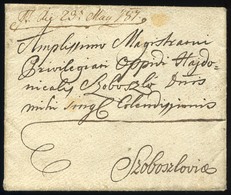 23ª May 757
Amplissimo Magistratui
Privilegiati Oppidi Hajdo-
nicalis Soboszló Dnis
mihi singl Colendissimis
Szoboszlovia